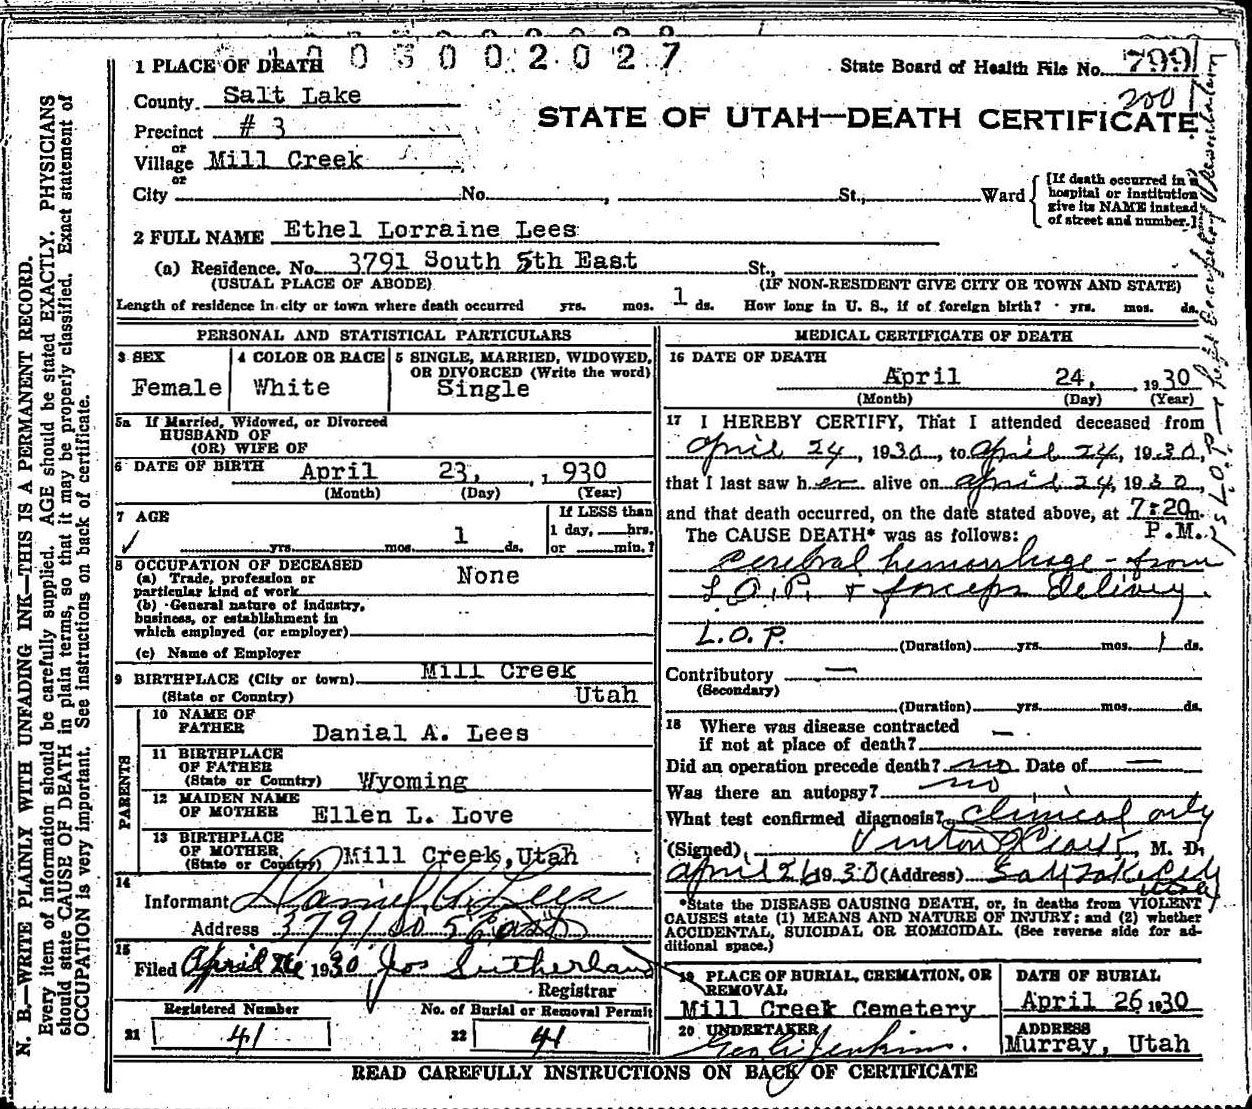 1003002027
1 PLACE OF DEATH
State Board of Health File No. 799
200
County Salt Lake
STATE OF UTAH—DEATH CERTIFICATE
Precinct # 3
or
Village Mill Creek
or
City No. , St., Ward
[If death occurred in a hospital or institution give its NAME instead of street and number.]
2 FULL NAME Ethel Lorraine Lees
(a) Residence. No. 3791 South 5th East St.,
(USUAL PLACE OF ABODE) (IF NON-RESIDENT GIVE CITY OR TOWN AND STATE)
Length of residence in city or town where death occurred yrs. mos. 1 ds. How long in U. S., if of foreign birth? yrs. mos. ds.
PERSONAL AND STATISTICAL PARTICULARS
3 SEX
Female
4 COLOR OR RACE
White
5 SINGLE, MARRIED, WIDOWED, OR DIVORCED (Write the word)
Single
5a If Married, Widowed, or Divorced
HUSBAND OF
(OR) WIFE OF
6 DATE OF BIRTH April 23, , 930
(Month) (Day) (Year)
7 AGE
yrs. mos. 1 ds.
If LESS than
1 day, hrs.
or min.?
8 OCCUPATION OF DECEASED
(a) Trade, profession or
particular kind of work None
(b) General nature of industry,
business, or establishment in
which employed (or employer)
(c) Name of Employer
9 BIRTHPLACE (City or town) Mill Creek
(State or Country) Utah
PARENTS
10 NAME OF
FATHER Danial A. Lees
11 BIRTHPLACE
OF FATHER
(State or Country) Wyoming
12 MAIDEN NAME
OF MOTHER Ellen L. Love
13 BIRTHPLACE
OF MOTHER
(State or Country) Mill Creek, Utah
14
Informant Daniel A. Lees
Address 3791 So 5 East
15
Filed April 26 1930 Jos Sutherland
Registrar
Registered Number
21 41
No. of Burial or Removal Permit
22 41
MEDICAL CERTIFICATE OF DEATH
16 DATE OF DEATH
April 24, , 1930
(Month) (Day) (Year)
17 I HEREBY CERTIFY, That I attended deceased from
April 24, 1930, to April 24, 1930,
that I last saw her alive on April 24, 1930,
and that death occurred, on the date stated above, at 7:20 m.
P.M.
The CAUSE DEATH* was as follows:
Cerebral hemorrhage - from
L.O.P. + forceps delivery.
L.O.P.
(Duration) yrs. mos. 1 ds.
Contributory —
(Secondary)
(Duration) yrs. mos. ds.
18 Where was disease contracted
if not at place of death? —
Did an operation precede death? no Date of —
Was there an autopsy? no
What test confirmed diagnosis? clinical only
(Signed) , M. D.
April 26 1930 (Address) Salt Lake City
Utah
*State the DISEASE CAUSING DEATH, or, in deaths from VIOLENT
CAUSES state (1) MEANS AND NATURE OF INJURY; and (2) whether
ACCIDENTAL, SUICIDAL OR HOMICIDAL. (See reverse side for ad-
ditional space.)
19 PLACE OF BURIAL, CREMATION, OR
REMOVAL
Mill Creek Cemetery
DATE OF BURIAL
April 26 1930
20 UNDERTAKER
Geo. Jenkins.
ADDRESS
Murray, Utah
READ CAREFULLY INSTRUCTIONS ON BACK OF CERTIFICATE
N. B.—WRITE PLAINLY WITH UNFADING INK—THIS IS A PERMANENT RECORD.
Every item of information should be carefully supplied. AGE should be stated EXACTLY. PHYSICIANS
should state CAUSE OF DEATH in plain terms, so that it may be properly classified. Exact statement of
OCCUPATION is very important. See instructions on back of certificate.